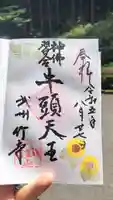 奉拝
令和五年
八月廿七日
神佛習合
牛頭天王
武州竹寺